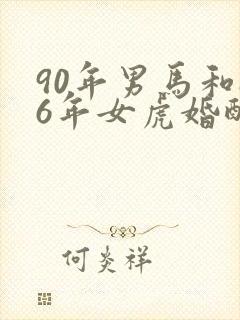 90年男馬和
6年女虎婚
何炎祥